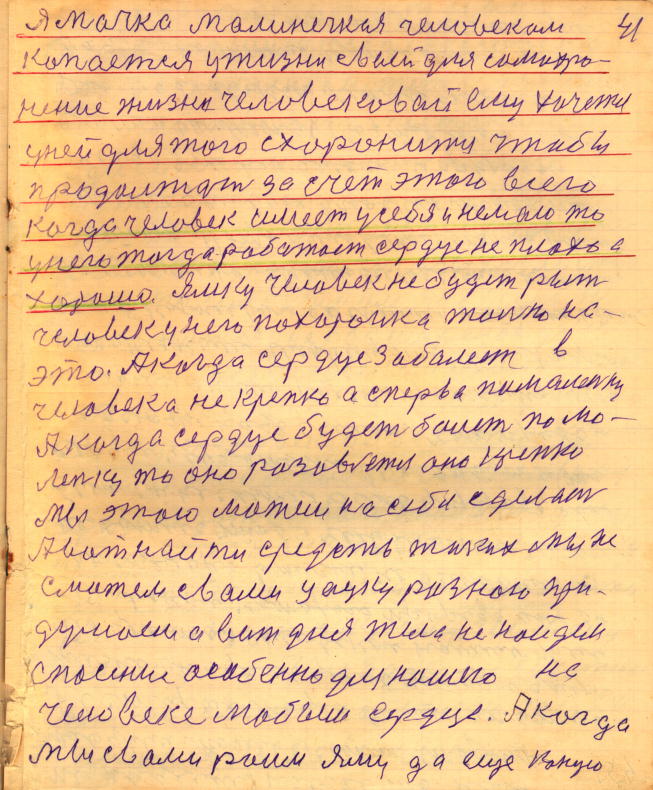 Ямачка малинечкая человеком 41
копается ужизни своей для самохро-
нение жизни человековай ему хочется
уней для того схоронится чтобы
продолжат за счет этого всего
когда человек имеет усебя и немало то
унего тогда работает сердце не плохо а
хорошо. Ямку человек не будет рыт
человеку него похоронка толко на-
это. А когда сердце заболеет в
человека не крепко а сперва помаленку
А когда сердце будет болет пома-
ленку то оно разовется оно крепко
Мы этого можем на себе сделат
А вот найти средств таких мы не
сможем свами уауку разною при-
думаем а вот для тела не найдем
спасение особенно для нашего на
человеке
сердце. А когда
мы свами роим яму да еще какую